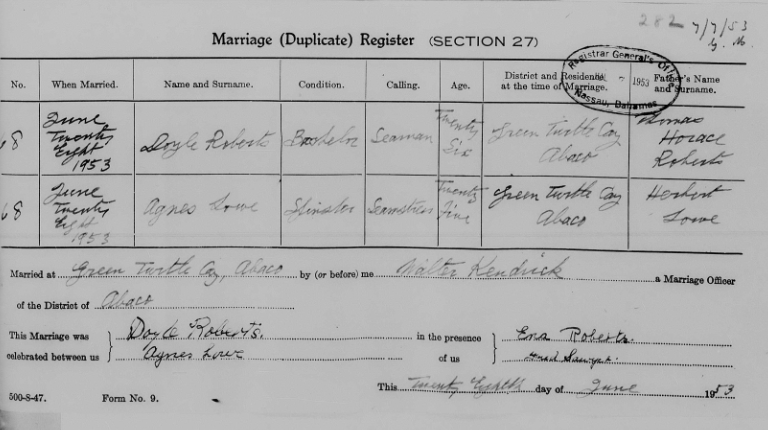 282 7/7/53
Marriage (Duplicate) Register (SECTION 27)
Registrar General's Office
1953
Nassau, Bahamas
No. When Married. Name and Surname. Condition. Calling. Age. District and Residence at the time of Marriage. Father's Name and Surname.
68 June Twenty Eight 1953 Doyle Roberts Bachelor Seaman Twenty Six Green Turtle Cay Abaco Thomas Horace Roberts
68 June Twenty Eight 1953 Agnes Lowe Spinster Seamstress Twenty Five Green Turtle Cay Abaco Herbert Lowe
Married at Green Turtle Cay, Abaco by (or before) me Walter Kendrick a Marriage Officer
of the District of Abaco
This Marriage was Doyle Roberts. in the presence Roberts.
celebrated between us Agnes Lowe of us
This Twenty Eighth day of June 1953
500-8-47. Form No. 9.